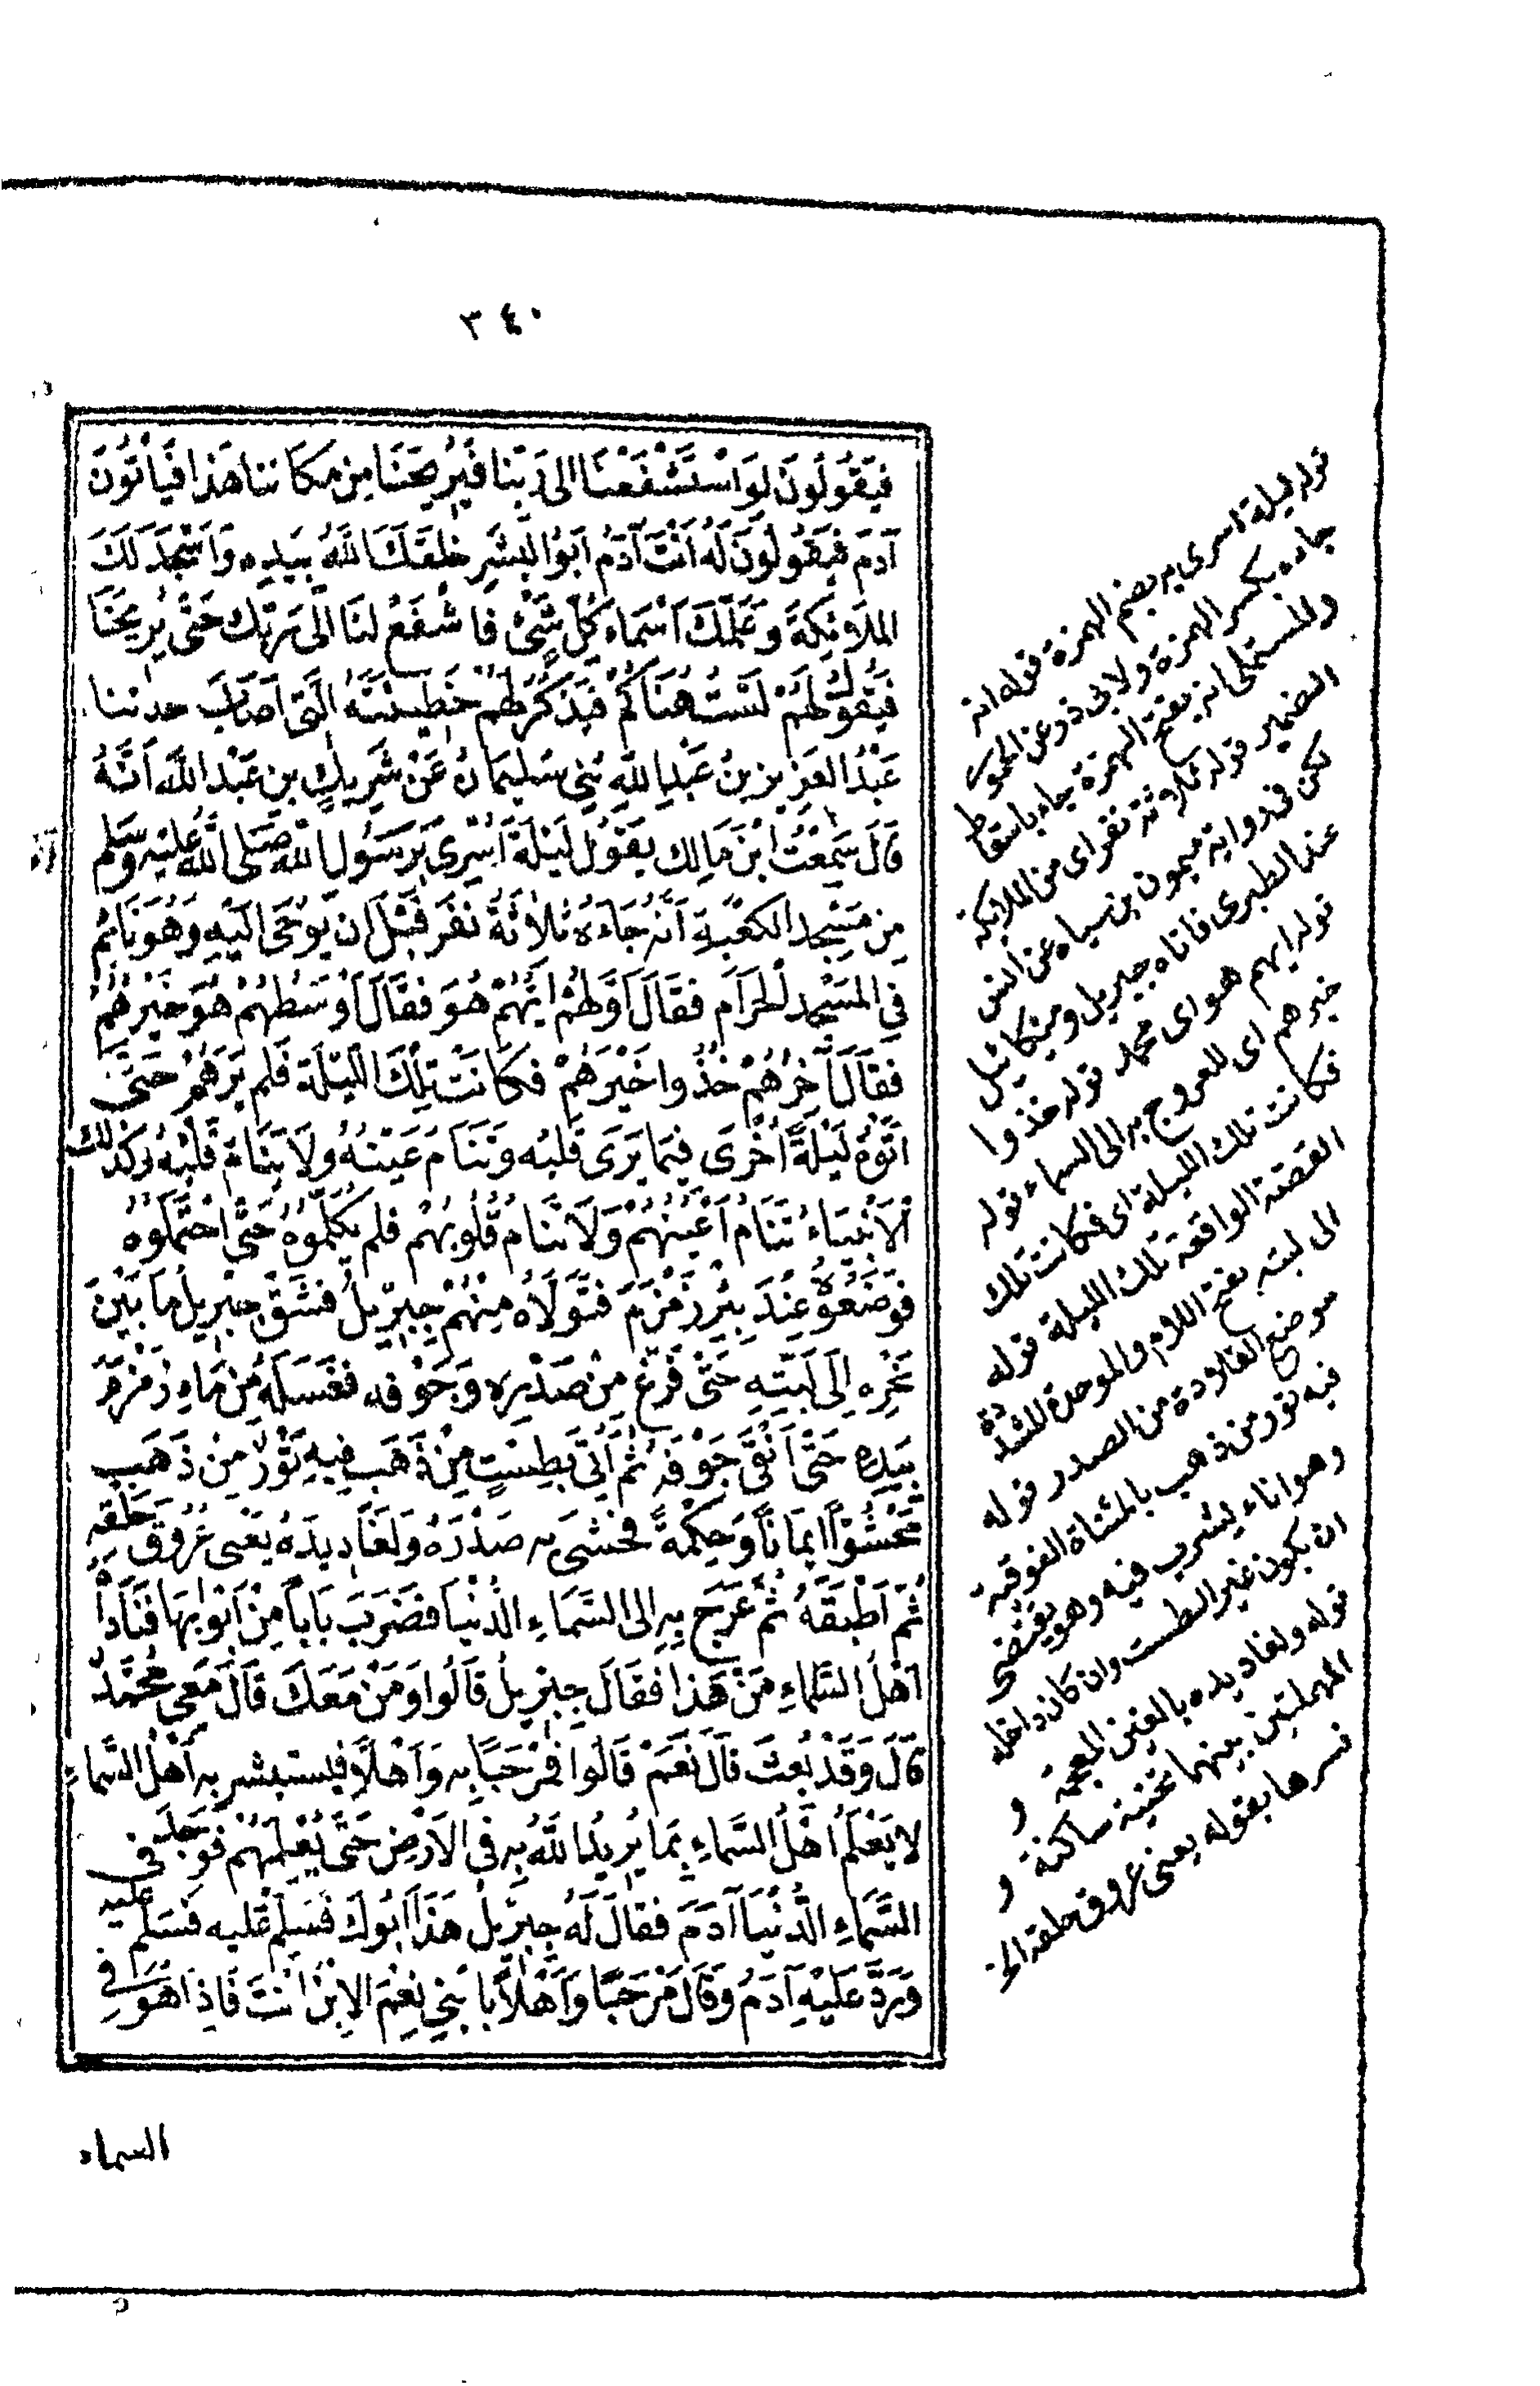 ٣٤٠
فَيَقُولُونَ لَوِ اسْتَشْفَعْنَا الى رَبِّنا فَيُرِيحَنَا مِنْ مَكَانِنا هَذا فَيَأتُونَ
آدَمَ فيَقُولُونَ لَهُ أَنْتَ آدَمُ ابُو البَشَرِ خَلَقَكَ اللهُ بِيَدِهِ وَاَسْجَدَ لَكَ
الملاَئِكَةَ وَعَلَّمَكَ اَسْمَاءَ كُلِّ شَئْ فَاشْفَعْ لنَا اِلَى رَبِّك حَتَّى يُرِيحَنَا
فَيَقُولُ لَهُمْ لَسْتُ هُنَاكُمْ فَيَذْكُرُ لَهُمْ خَطِيئَتَهُ الَّتِى اَصَابَ حدثنا
عَبْدُ العَزِيزِ بنُ عَبْدِ اللهِ ثني سُلَيمَانُ عَنْ شَرِيكِ بنِ عَبْدِ اللهِ اَنَّهُ
قَالَ سَمِعْتُ ابْنَ مَالِك يَقُولُ لَيْلَةَ اُسْرِىَ بِرَسُولِ اللهِ صَلَّى اللهُ عَلَيْهِ وَسَلم
مِن مَسْجِدِ الكَعْبَةِ اَنَّهُ جَاءَهُ ثَلاَثَةُ نَفَرٍ قَبْلَ ان يُوحَى اِلَيْهِ وَهُوَ نَائِمٌ
فى المَسْجِدِ الْحَرَامِ فَقَالَ اَوَّلهُمْ اَيُّهُمْ هُوَ فقَالَ اَوْسَطُهُمْ هُوَ خَيْرُهُمْ
فقَالَ آخِرُهُمْ خُذُوا خَيْرَهُمْ فكَانَتْ تِلْكَ اللَّيْلَةَ فَلَم يَرَهُمْ حَتَّى
اَتَوْهُ لَيْلَةً اُخْرَى فِيمَا يَرَى قَلبُه وَتَنَامُ عَيْنُهُ ولاَ يَنَامُ قَلْبُهُ وَكَذلِكَ
اْلاَنْبِيَاءُ تَنَامُ اَعْيُنُهُمْ وَلاَ تَنَامُ قُلُوبُهُمْ فلم يُكَلِّمُوهُ حَتَّى احْتَمَلُوهُ
فوَضَعُوهُ عِنْدَ بِئرِ زَمْزَمَ فَتَوَلاَّهُ مِنْهُمْ جِبْرِيلُ فَشَقَّ جِبْرِيلُ مَا بَيْنَ
نَحْرِهِ اِلَى لَبَّتِهِ حَتَّى فَرَغَ مِنْ صَدْرِهِ وَجَوْفِه فغَسَلَهُ مِنْ مَاءِ زَمْزَمَ
بِيَدِهِ حَتَّى اَنْقَى جَوْفَهُ ثُمَّ اُتِىَ بطَسْتٍ مِنْ ذَهَبٍ فِيهِ تَوْرٌ مِنْ ذَهَبٍ
مَحْشُوًّا اِيمَانًا وَحِكْمَةً فحَشَى بِه صَدْرَهُ وَلَغَادِيدَهُ يَعْنِى عُرُوقَ حَلْقِهِ
ثُمَّ اَطْبَقَهُ ثُمَّ عَرَجَ بِهِ اِلى السَّمَاءِ الدُّنْيَا فضَرَبَ بَابًا مِنْ اَبْوَابِهَا فَنَادَاهُ
اَهْلُ السَّمَاءِ مَنْ هَذا فَقَالَ جِبْرِيلُ قَالُوا وَمَنْ مَعَكَ قَالَ مَعِى مُحَمَّدٌ
قَالَ وَقَدْ بُعِثَ قَالَ نَعَمْ قَالُوا فَمَرْحَبًا بِه وَاَهْلاً فيَستبشر بِه اَهْلُ السَّمَاءِ
لا يَعْلَمُ اَهْلُ السَّمَاءِ بِمَا يُرِيدُ اللهُ بِهِ فى الاَرْضِ حَتَّى يُعْلِمَهُمْ فَوَجَدَ فى
السَّمَاءِ الدُّنْيَا آدَمَ فقَالَ لَهُ جِبْرِيلُ هَذَا اَبُوكَ فَسَلِّمْ عَلَيه فَسَلَّمَ عَليه
وَرَدَّ عَلَيْهِ آدَمُ وَقَالَ مَرْحَبًا وَاَهْلاً بابْنِي نِعْمَ الاِبْنُ اَنْتَ فَاِذَا هُوَ فِى
السماء
قوله ليلة اسرى به بضم الهمزة قوله انه
جاءه بكسر الهمزة ولابى ذر عن الحموى
والمستملى انه بفتح الهمزة جاء باسقاط
الضمير قوله ثلاثة نفر اى من الملائكة
لكن فى رواية ميمون بن سياه عن انس
عند الطبرى فاتاه جبريل وميكائيل
قوله ايهم هو اى محمد قوله خذوا
خيرهم اى للعروج به الى السماء قوله
فكانت تلك الليلة اى فكانت تلك
القصة الواقعة تلك الليلة قوله
الى لبته بفتح اللام والموحدة المشددة
موضع القلادة من الصدر قوله
فيه تور من ذهب بالمثناة الفوقية
وهو اناء يشرب فيه وهو يقتضى
ان يكون غير الطست وان كان داخله
قوله ولغاديده بالغين المعجمة و
المهملتين بينهما تحتية ساكنة و
فسرها بقوله يعنى عروق حلقه الخ